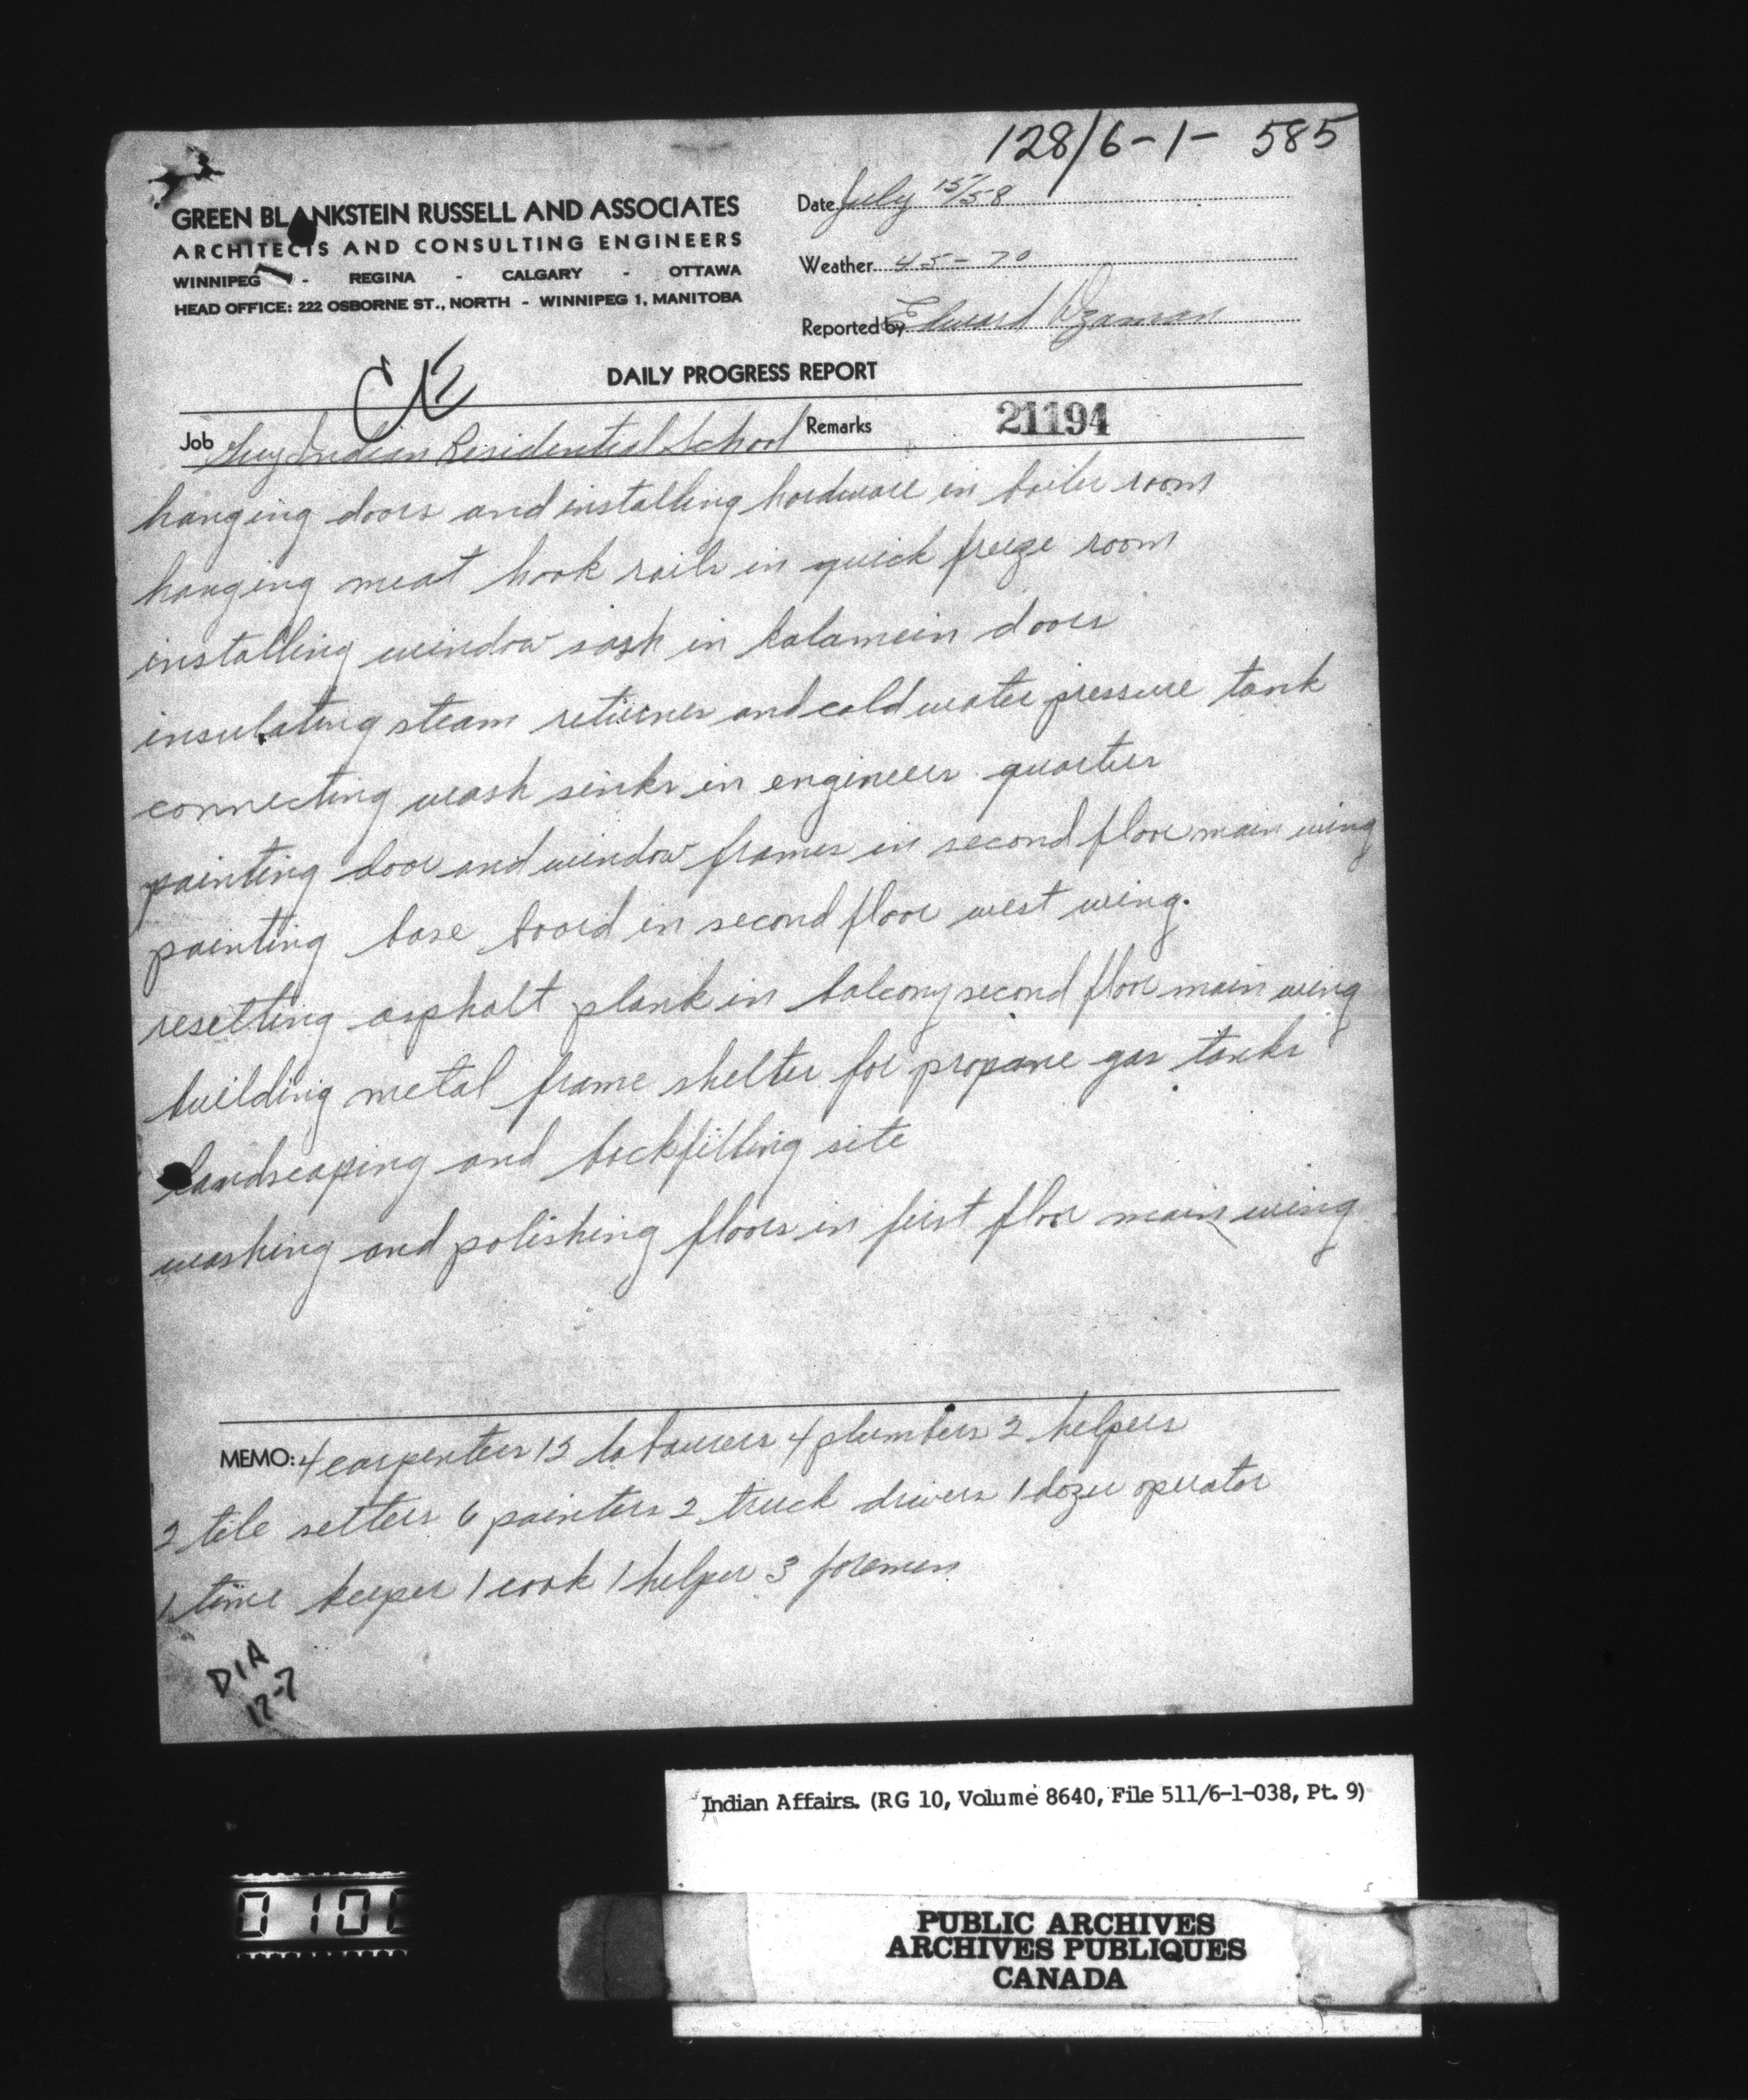 128/6-1- 585
GREEN BLANKSTEIN RUSSELL AND ASSOCIATES
ARCHITECTS AND CONSULTING ENGINEERS
WINNIPEG - REGINA - CALGARY - OTTAWA
HEAD OFFICE: 222 OSBORNE ST., NORTH - WINNIPEG 1, MANITOBA
Date July 15/58
Weather 45-70
Reported by Edward
DAILY PROGRESS REPORT
Job Guy Indian Residential School Remarks 21194
hanging doors and installing hardware in boiler room
hanging meat hook rails in quick freeze room
installing window sash in kalamein doors
insulating steam returnes and cold water pressure tank
connecting wash sinks in engineers quarters
painting door and window frames in second floor main wing
painting base board in second floor west wing.
resetting asphalt plank in balcony second floor main wing
building metal frame shelter for propane gas tanks
landscaping and backfilling site
washing and polishing floors in first floor main wing
MEMO: 4 carpenters 15 labourers 4 plumbers 2 helpers
2 tile setters 6 painters 2 truck drivers 1 dozer operator
1 time keeper 1 cook 1 helper 3 foremen
DIA
17-7
Indian Affairs. (RG 10, Volume 8640, File 511/6-1-038, Pt. 9)
PUBLIC ARCHIVES
ARCHIVES PUBLIQUES
CANADA